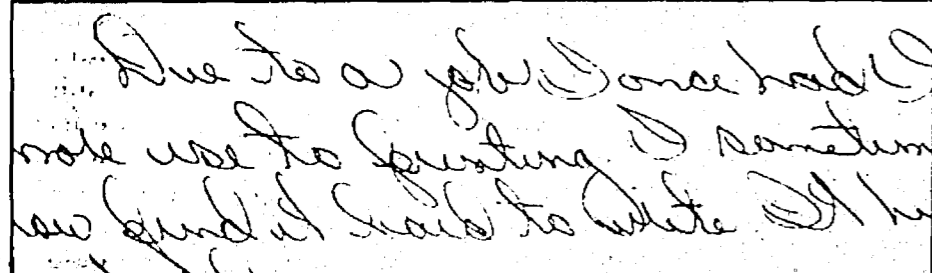 Due to a job I once had I
more use to printing. I sometim
now find it hard to write It h